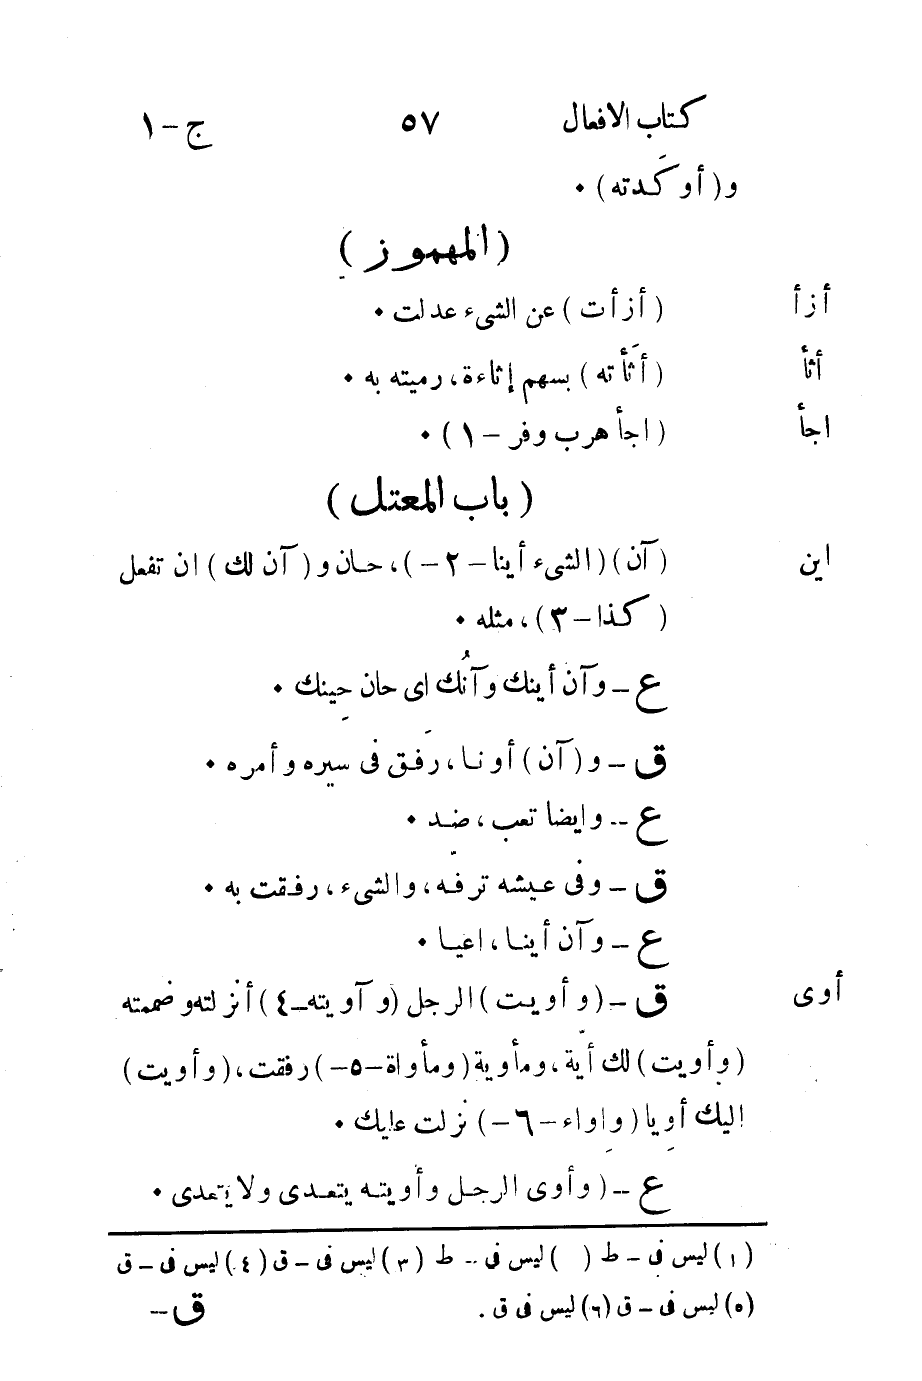 كتاب الافعال ٥٧ ج-١
و(أوكَدته) ٠
(المهموز)
أزأ (أزأت) عن الشىء عدلت ٠
أثأ (أثَأته) بسهم إثاءة، رميته به ٠
اجأ (اجأ هرب وفر -١) ٠
(باب المعتل)
اين (آن) (الشىء أينا-٢-)، حان و(آن لك) ان تفعل
(كذا-٣)، مثله ٠
ع- وآن أينك وآنُك اى حان حِينك ٠
ق- و(آن) أونا، رَفق فى سيره وأمره ٠
ع -- وايضا تعب، ضد ٠
ق- وفى عيشه ترفّه، والشىء، رفقت به ٠
ع- وآن أينا، اعيا ٠
أوى ق-(وأويت) الرجل (وآويته-٤) أنزلته وضممته
(وأويت) لك أيّة، ومأوِية (ومأواة-٥-) رفقت، (وأويت)
اليك أوِيا (وإواء-٦-) نزلت عليك ٠
ع -(وأوى الرجل وأويته يتعدى ولا يتعدى ٠
(١) ليس فى - ط ( ) ليس فى -- ط (٣) ليس فى - ق (٤) ليس فى - ق
(٥) ليس فى - ق (٦) ليس فى ق .
ق-